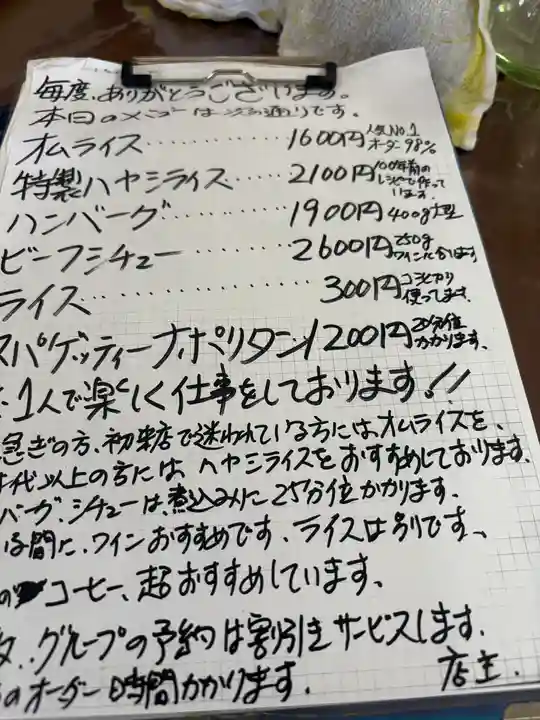 毎度、ありがとうございます。
本日のメニューは次の通りです。
オムライス‥‥‥‥‥1600円 人気No.1 オーダー98%
特製ハヤシライス‥‥‥2100円 100年前のレシピで作っています。
ハンバーグ‥‥‥‥‥1900円 400g大型
ビーフシチュー‥‥‥‥2600円 250g ワインに合います
ライス‥‥‥‥‥‥‥300円 コシヒカリ使ってます。
スパゲッティーナポリタン1200円 20分位かかります。
1人で楽しく仕事をしております!!
急ぎの方、初来店で迷われている方にはオムライスを、
代以上の方にはハヤシライスをおすすめしております。
バーグ、シチューは、煮込みに25分位かかります。
る間に、ワインおすすめです、ライスは別です、
の コーヒー、超おすすめしています、
グループの予約は割引きサービスします。
のオーダー時間かかります. 店主.